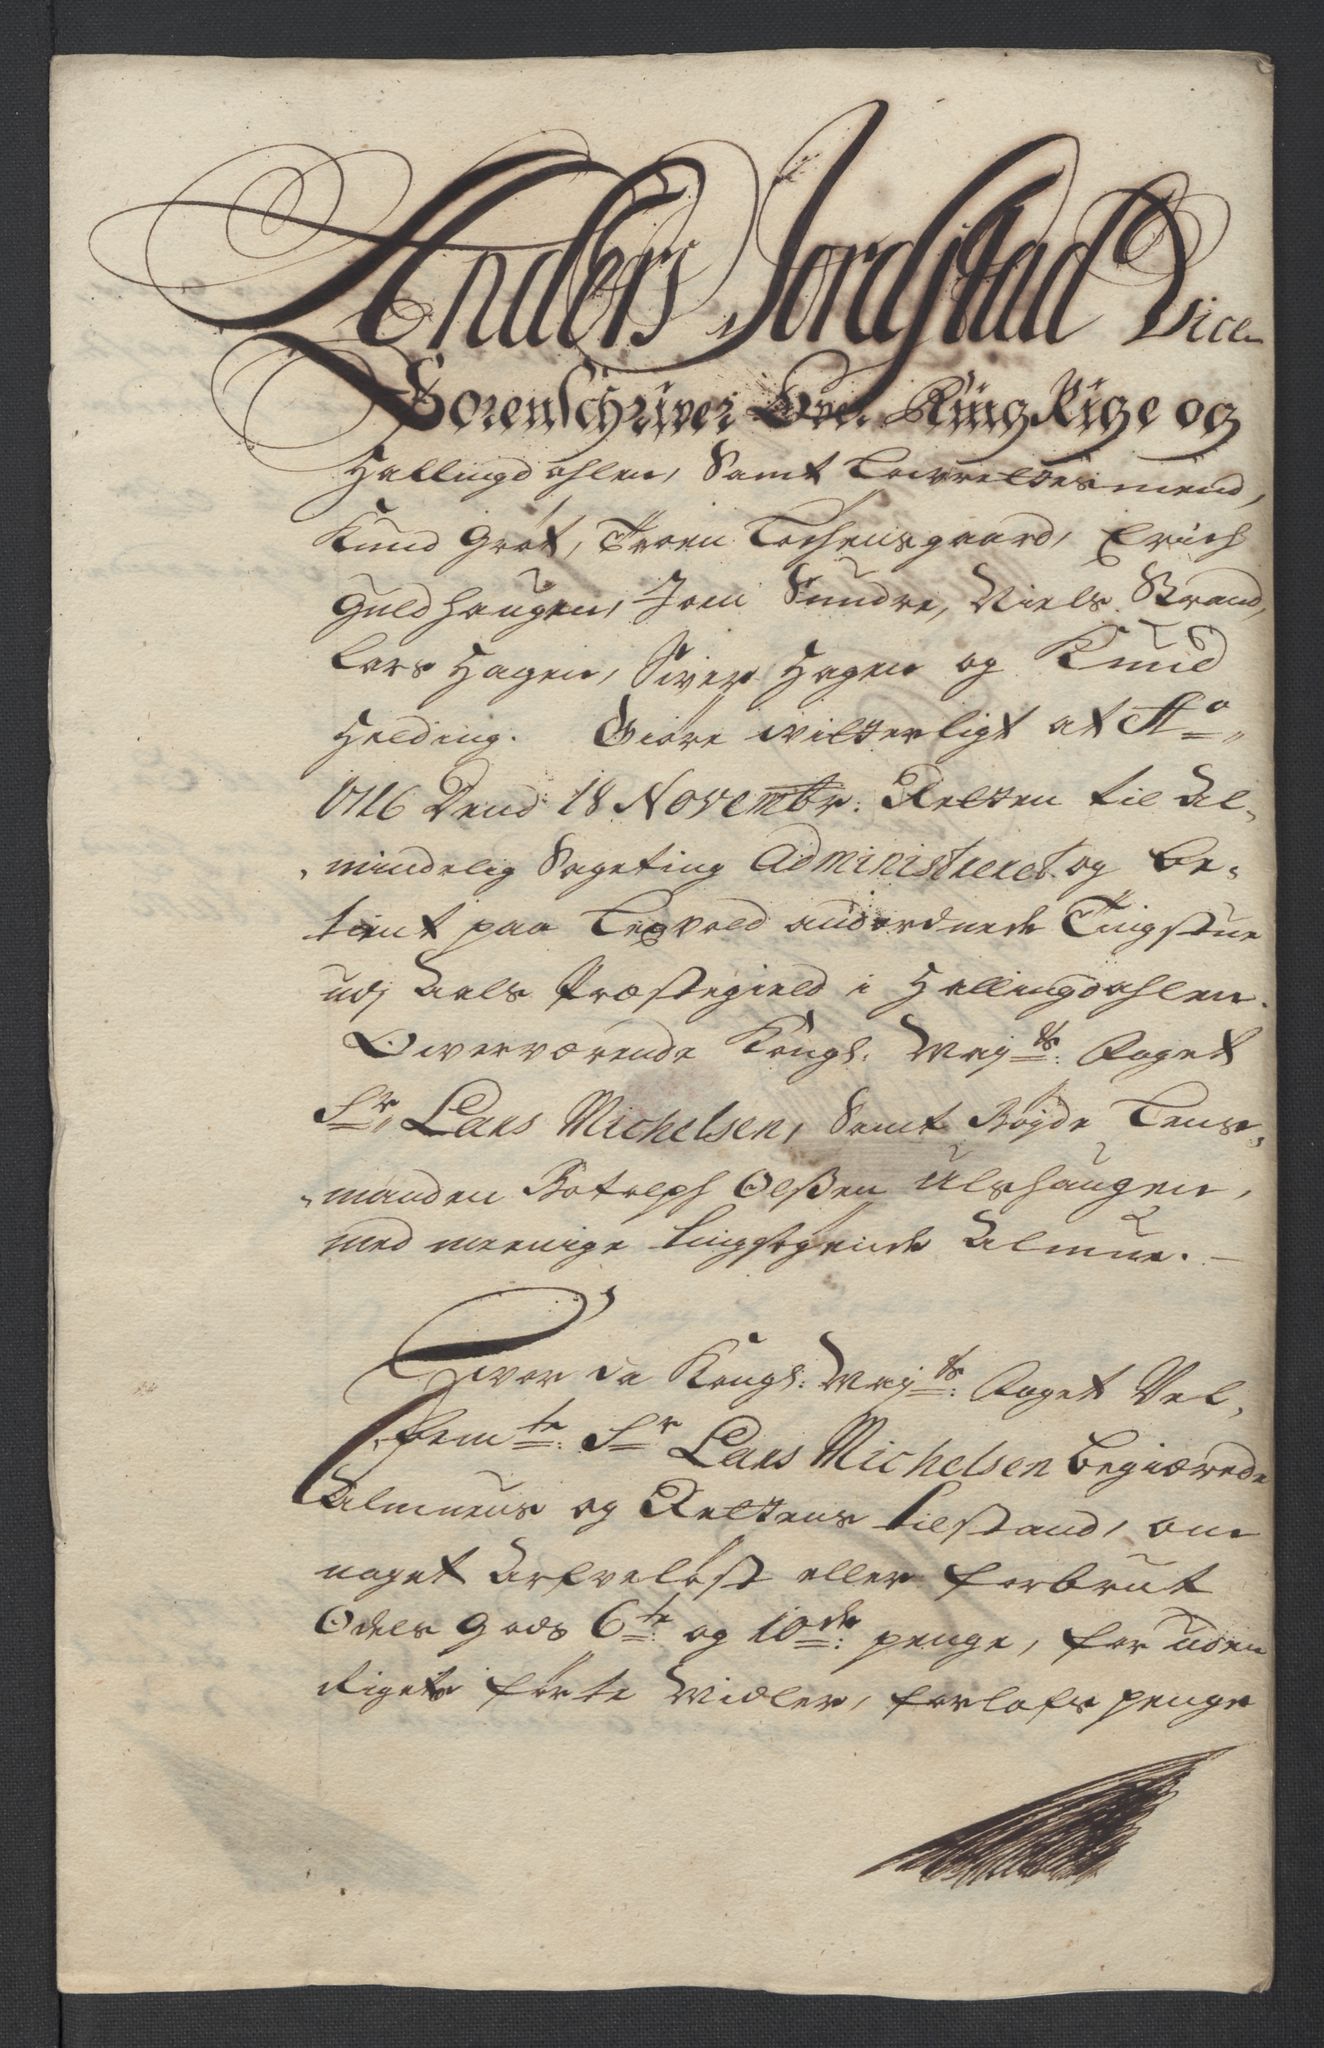 Anders Jordstad Vice
Sorenschriver Over Ring Rige og
Hallingdahlen, Samt Laurettesmend,
Knud Grøt, Troen Tochensgaard, Erich
Guldhaugen, Joen Sundre, Niels Brand,
Lars Hagen, Siver Hagen og Knud
Helding. Giøre witterligt at Ao
1716 Dend 18 Novembr: Retten til Al-
mindelig Sageting Administreret og be-
tient paa Legvold anordnede Tingstue
udj Aals Præstegield i Hallingdahlen.
Owerværende Kongl: Maytts: Foget
Sr Lars Michelsen, Samt Bøyde Lens-
manden Botolph Olßen Ulshaugen,
med meenige tingsøgende Almue. —
Hvor da Kongl: Maytts: Foget Vel-
fornte: Sr Lars Michelsen begiærede
Almuens og Rettens tilstand, om
noget Arfveløst eller forbrut
Odels gods 6te: og 10de: penge, for uden
Riget førte Midler, forlofs penge